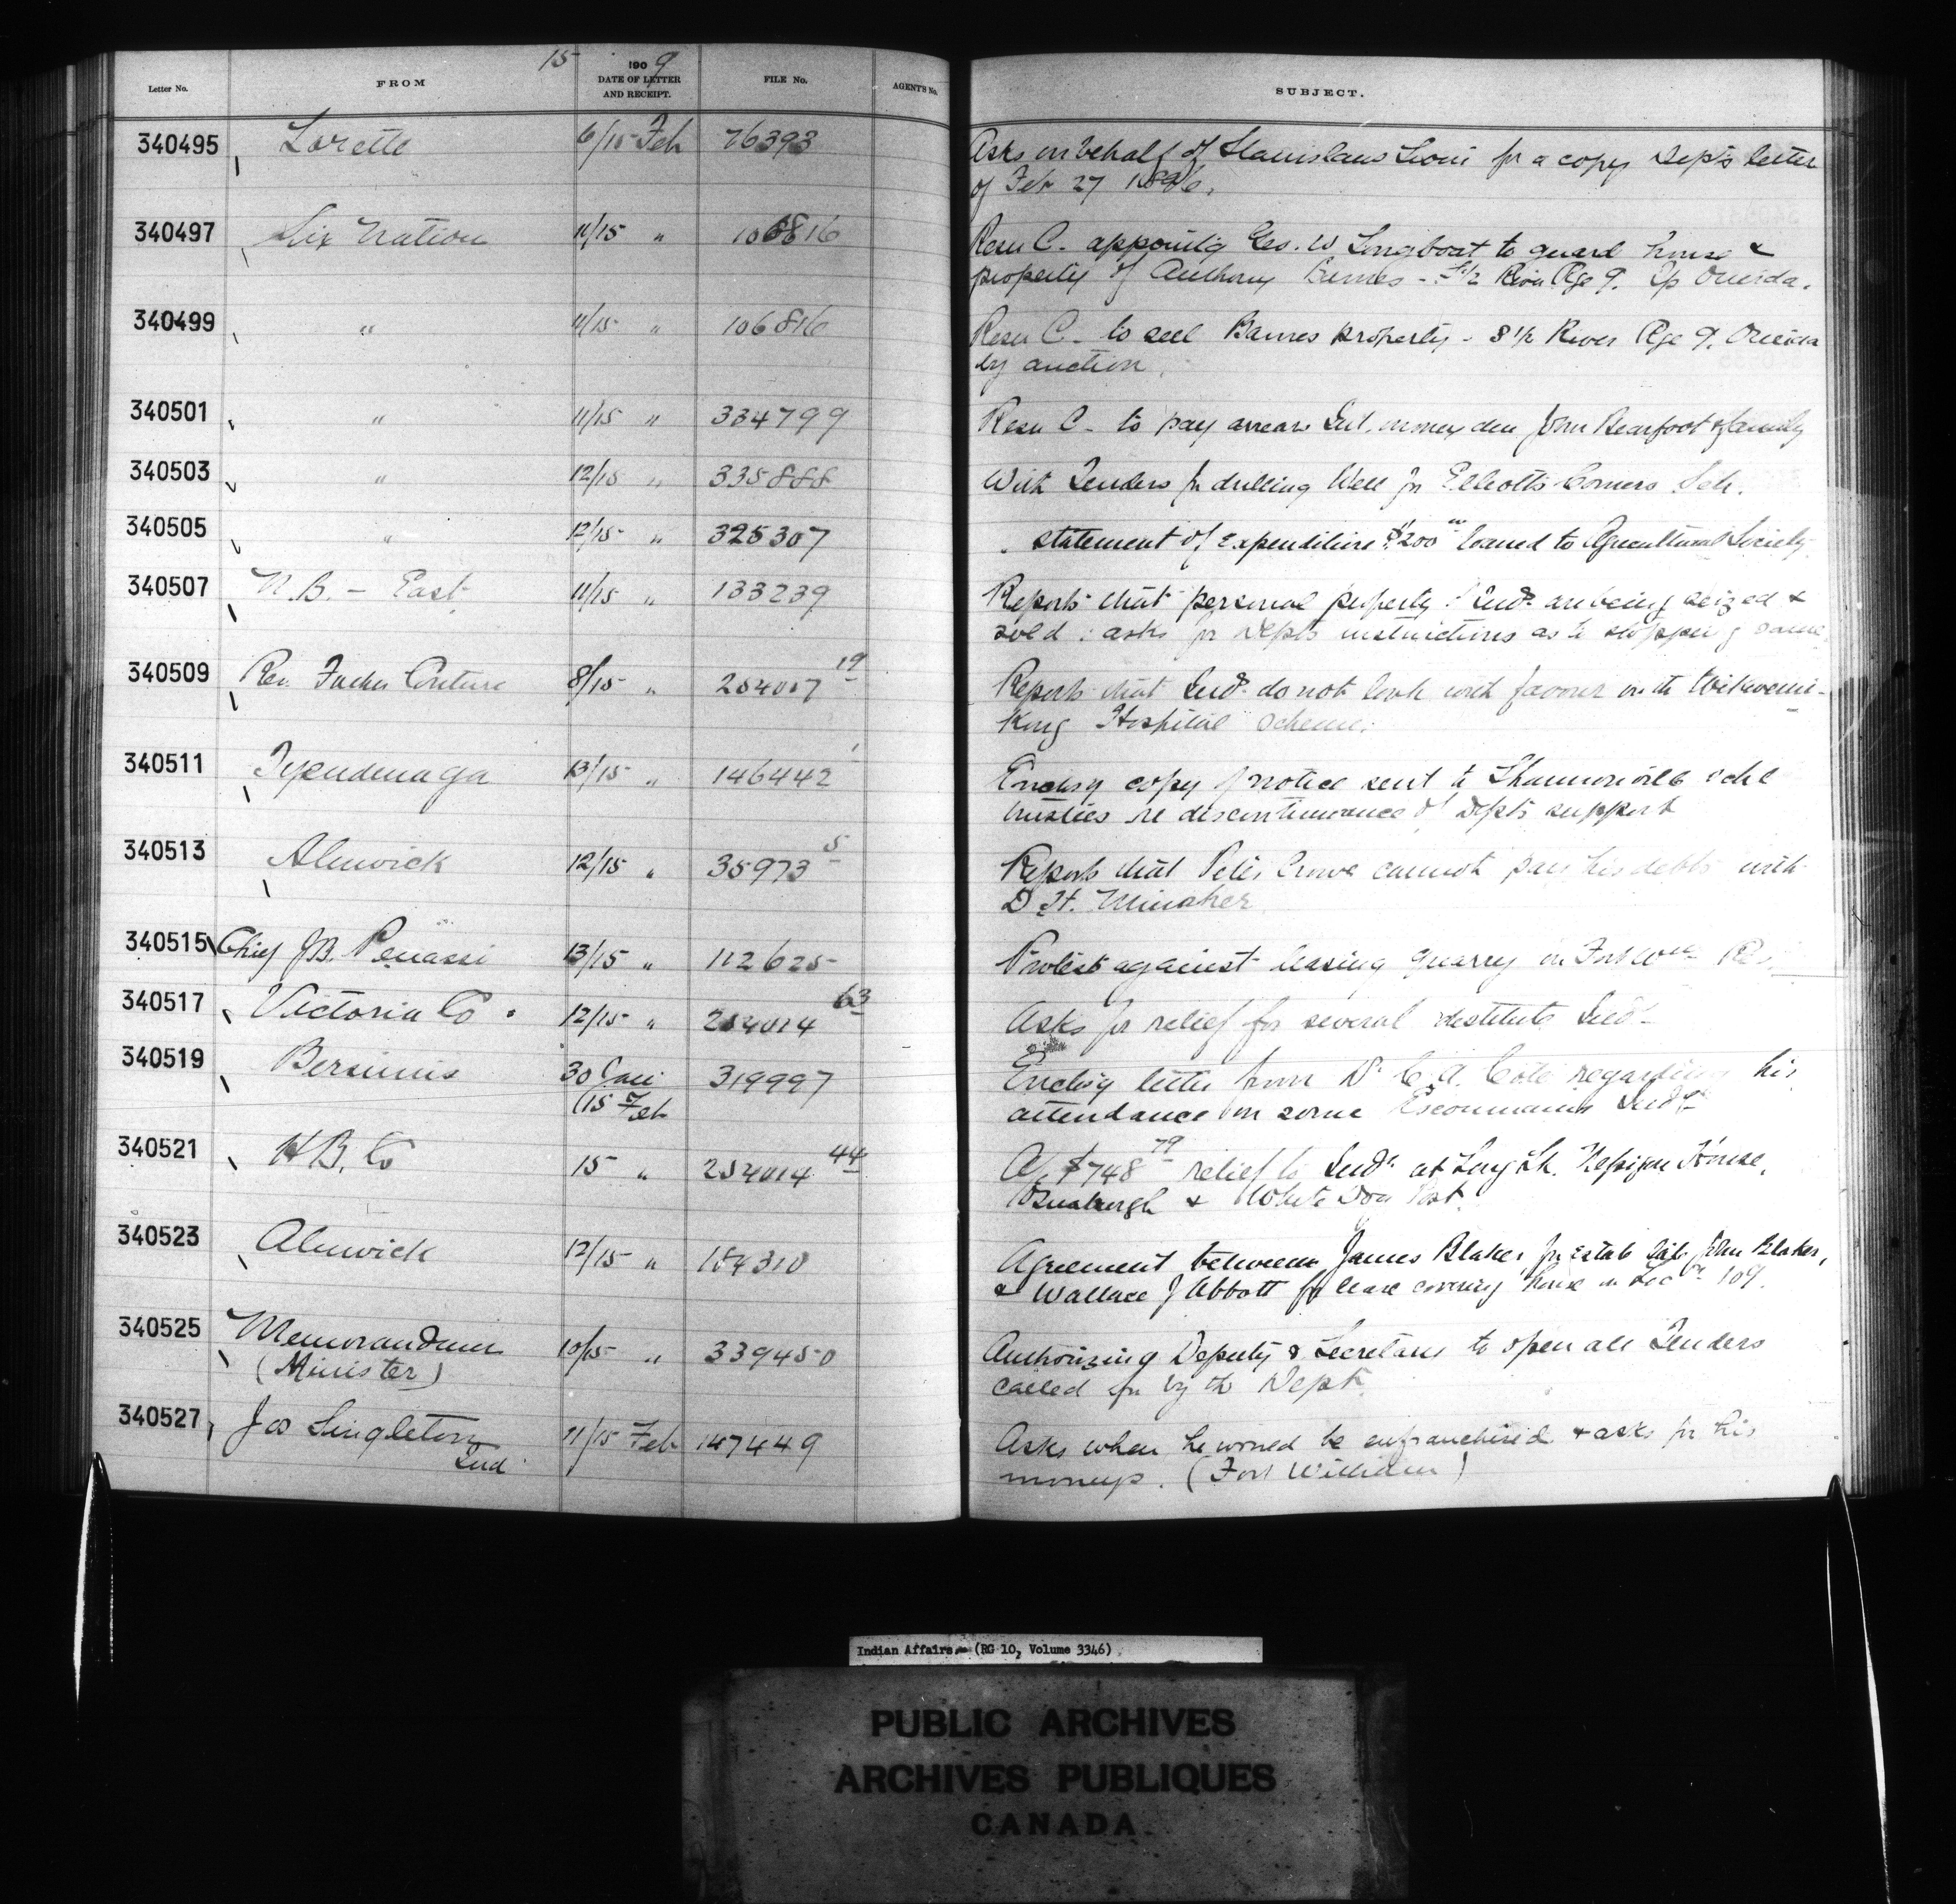 15 1909
Letter No. FROM DATE OF LETTER AND RECEIPT. FILE No. AGENT'S No. SUBJECT.
340495 Lorette 6/15 Feb 76393 Asks on behalf of Stanislaus Sioui for a copy Dep's letter
of Feb 27 1896.
340497 Six Nation 11/15 " 106816 Resn C. appointg Geo. W Longboat to guard house &
property of Anthony - S½ River Rge 9. Tp Oneida.
340499 " 11/15 " 106816 Resn C - to sell Barnes property - S½ River Rge 9. Oneida
by auction.
340501 " 11/15 " 334799 Resn C - to pay arrears Int. money due John Bearfoot & family
340503 " 12/15 " 335888 With Tenders for drilling Well for Elliotts Corners Sch.
340505 " 12/15 " 325307 " statement of expenditure $200 00 loaned to Agricultural Society
340507 N.B. - East 11/15 " 133239 Reports that personal property of Inds are being seized &
sold: asks for Depts instructions as to stopping same.
340509 Rev. Father Couture 8/15 " 254017 19 Reports that Inds do not look with favour on the Wikwemi-
kong Hospital scheme.
340511 Tyendenaga 13/15 " 146442 1 Enclosg copy of notice sent to Shannonville schl
trustees re discontinuance of Depts support
340513 Alnwick 12/15 " 35973 5 Reports that Peter Crowe cannot pay his debts with
D. H. Minaker
340515 Chief J B. Penassi 13/15 " 112625 Protest against leasing quarry on Fort Wm Res.
340517 Victoria Co. 12/15 " 254014 63 Asks for relief for several destitute Inds
340519 Bersimis 30 Jan 319997 Enclosg letter from Dr C. A. Cote regarding his
/15 Feb attendance on some Escoumains Inds
340521 H B. Co 15 " 254014 44 A/c $748 79 relief to Inds at Long Lk. Nepigon House,
Osnaburgh & White Dog Post.
340523 Alnwick 12/15 " 154310 Agreement between James Blaker for estate late John Blaker,
& Wallace J Abbott for lease covering house on Loc n 109.
340525 Memorandum 10/15 " 339450 Authorizing Deputy & Secretary to open all Tenders
(Minister) called for by the Dept.
340527 Jos Singleton 11/15 Feb 147449 Asks when he would be enfranchised & asks for his
Ind moneys. (Fort William)
Indian Affairs (RG 10, Volume 3346)
PUBLIC ARCHIVES
ARCHIVES PUBLIQUES
CANADA